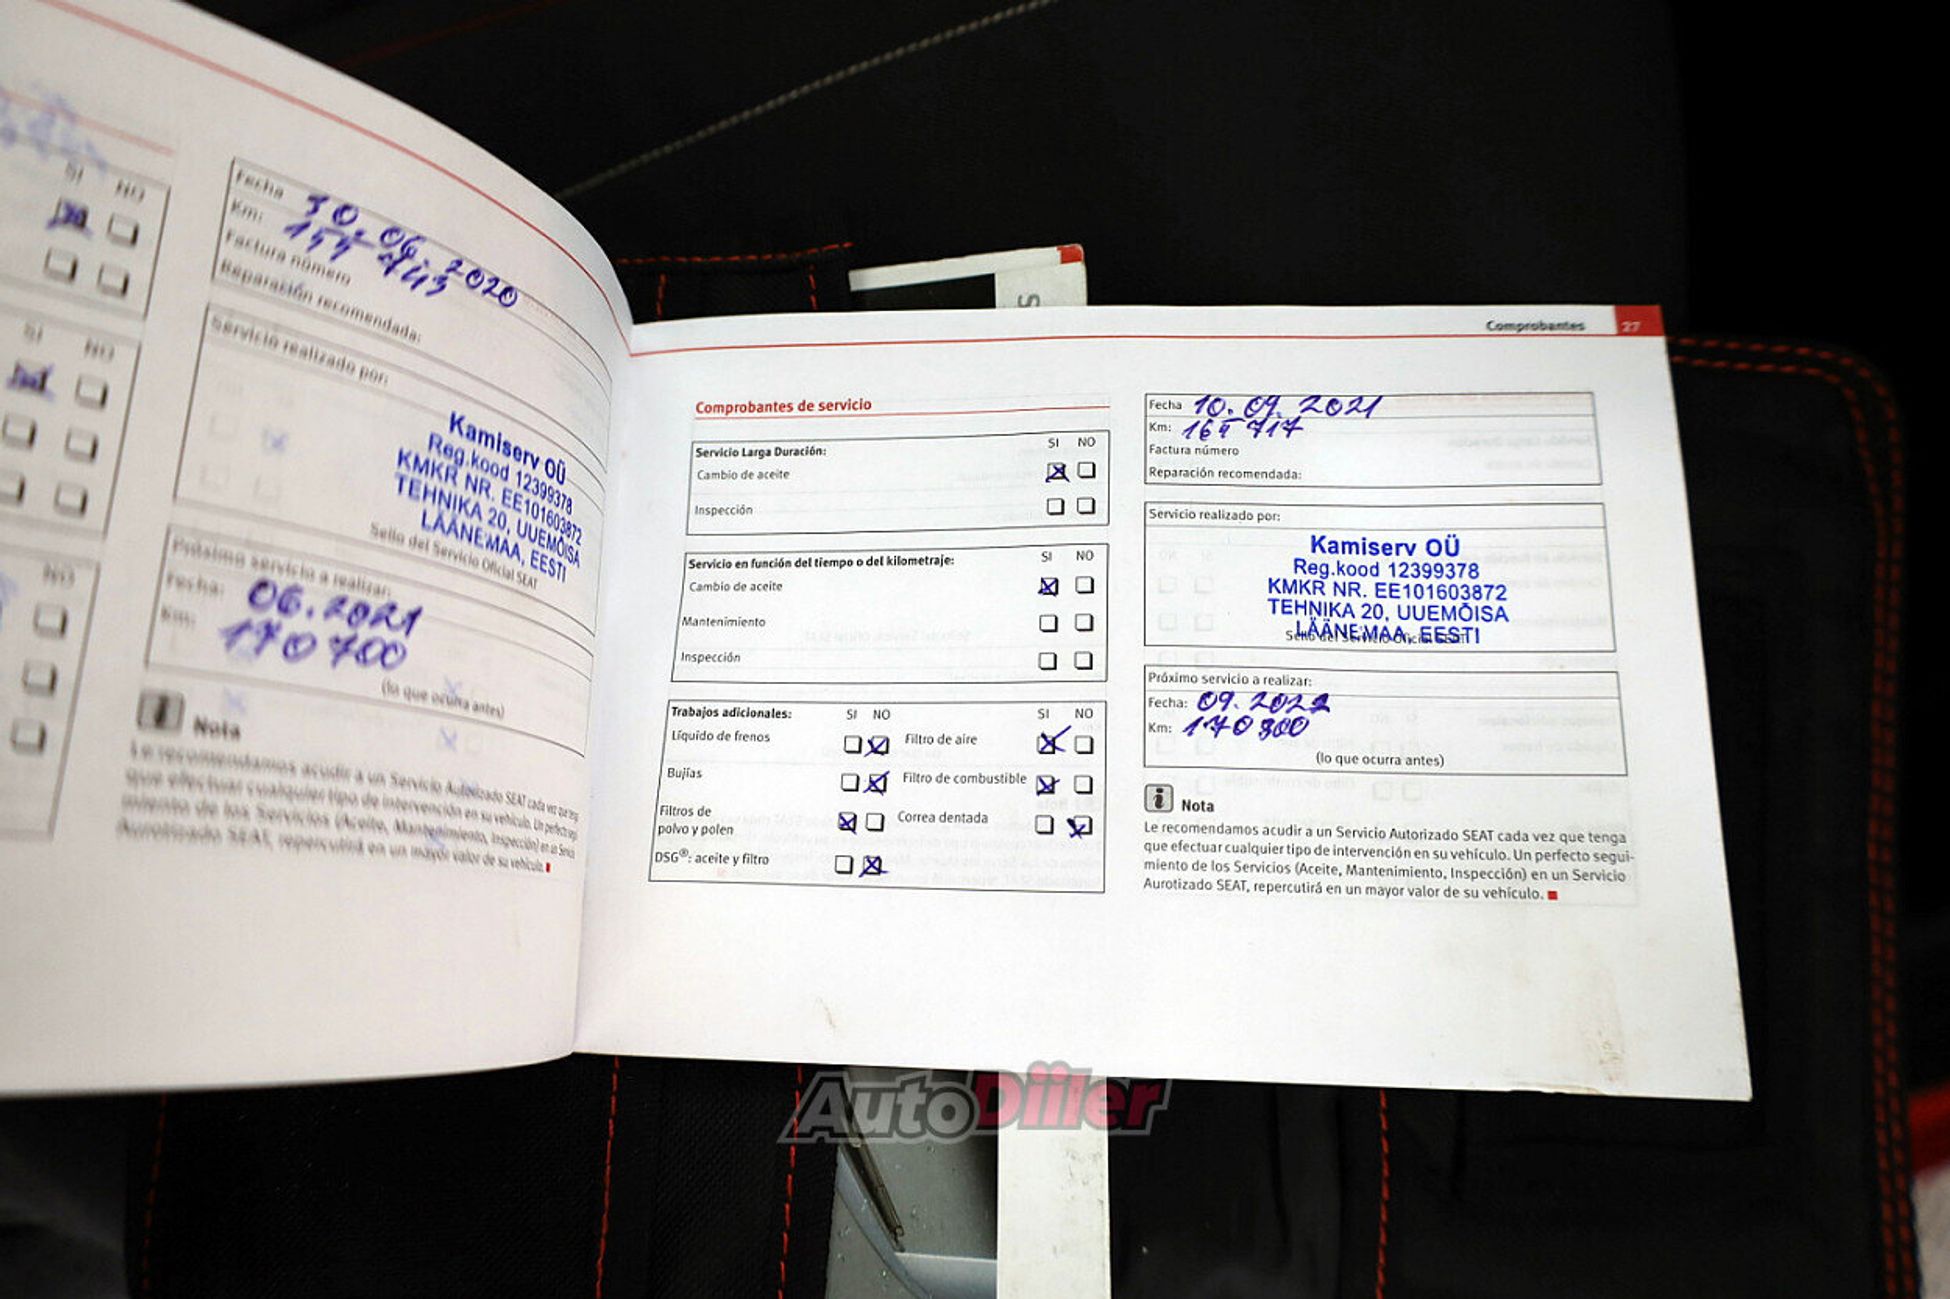 SI NO
SI NO
NO
Fecha 30.06.2020
Km:
Factura número
Reparación recomendada:
Servicio realizado por:
Kamiserv OÜ
Reg.kood 12399378
KMKR NR. EE101603872
TEHNIKA 20, UUEMÕISA
LÄÄNEMAA, EESTI
Sello del Servicio Oficial SEAT
Próximo servicio a realizar:
Fecha: 06.2021
Km: 170 700
(lo que ocurra antes)
Nota
Le recomendamos acudir a un Servicio Autorizado SEAT cada vez que tenga
que efectuar cualquier tipo de intervención en su vehículo. Un perfecto segui-
miento de los Servicios (Aceite, Mantenimiento, Inspección) en un Servicio
Aurotizado SEAT, repercutirá en un mayor valor de su vehículo.
S
Comprobantes 27
Comprobantes de servicio
Servicio Larga Duración: SI NO
Cambio de aceite
Inspección
Servicio en función del tiempo o del kilometraje: SI NO
Cambio de aceite
Mantenimiento
Inspección
Trabajos adicionales: SI NO SI NO
Líquido de frenos Filtro de aire
Bujías Filtro de combustible
Filtros de
polvo y polen Correa dentada
DSG®: aceite y filtro
Fecha 10.09.2021
Km: 717
Factura número
Reparación recomendada:
Servicio realizado por:
Kamiserv OÜ
Reg.kood 12399378
KMKR NR. EE101603872
TEHNIKA 20, UUEMÕISA
LÄÄNEMAA, EESTI
Sello del Servicio Oficial SEAT
Próximo servicio a realizar:
Fecha: 09.2022
Km:
(lo que ocurra antes)
i Nota
Le recomendamos acudir a un Servicio Autorizado SEAT cada vez que tenga
que efectuar cualquier tipo de intervención en su vehículo. Un perfecto segui-
miento de los Servicios (Aceite, Mantenimiento, Inspección) en un Servicio
Aurotizado SEAT, repercutirá en un mayor valor de su vehículo.
AutoDiiler